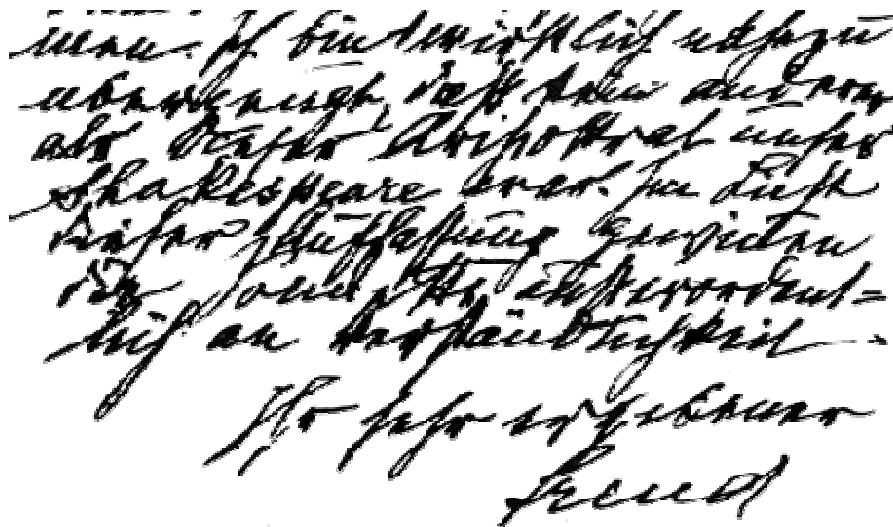 men. Ich bin wirklich nahezu
überzeugt, daß kein anderer
als dieser Aristokrat unser
Shakespeare war. Im Licht
dieser Auffassung gewinnen
die Sonette außerordent=
lich an Verständlichkeit.
Ihr sehr ergebener
Freud